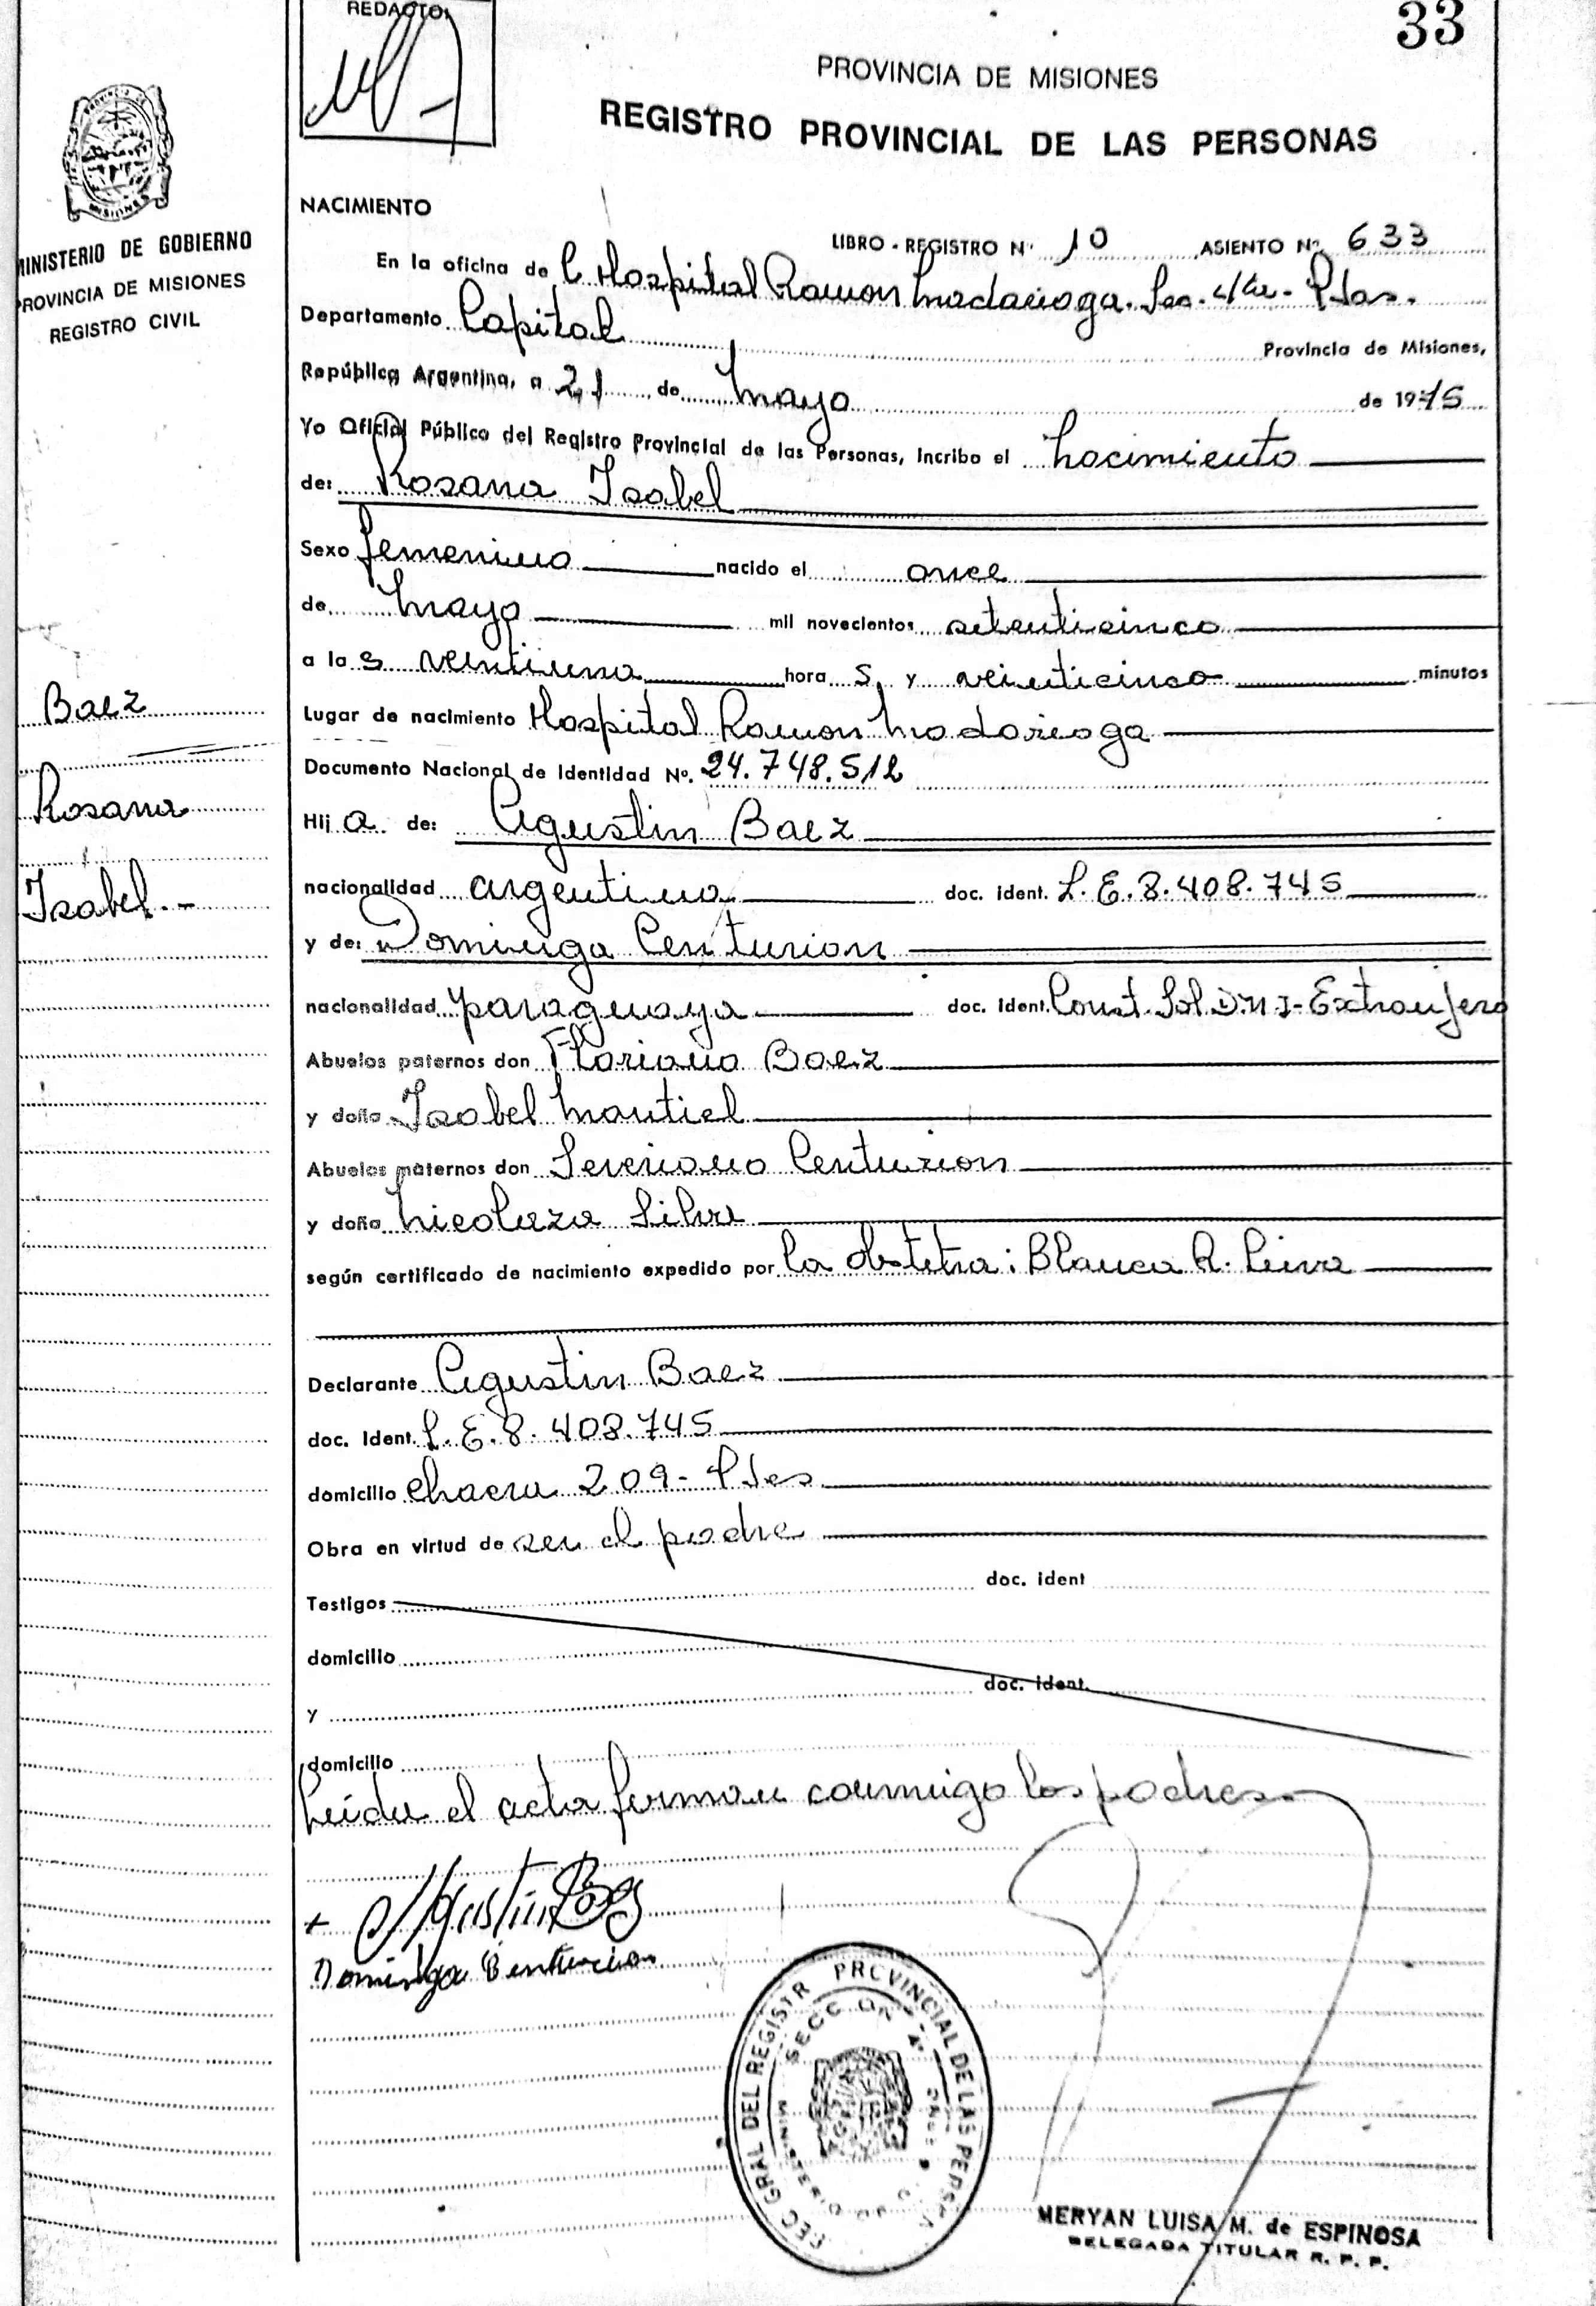 REDACTO:
33
PROVINCIA DE MISIONES
REGISTRO PROVINCIAL DE LAS PERSONAS
MISIONES
MINISTERIO DE GOBIERNO
PROVINCIA DE MISIONES
REGISTRO CIVIL
Baez
Rosana
Isabel.-
NACIMIENTO
LIBRO - REGISTRO Nº 10 ASIENTO Nº 633
En la oficina de Hospital Ramon Madariaga. Sec. 4ta - Pdas.
Departamento Capital Provincia de Misiones,
República Argentina, a 21 de Mayo de 1975
Yo Oficial Público del Registro Provincial de las Personas, incribo el Nacimiento
de: Rosana Isabel
Sexo femenino nacido el once
de Mayo mil novecientos setenticinco
a la s veintiuna hora s y veinticinco minutos
Lugar de nacimiento Hospital Ramon Madariaga
Documento Nacional de Identidad Nº. 24.748.512
Hij a de: Agustin Baez
nacionalidad argentina doc. ident. L.E.8.408.745
y de: Dominga Centurion
nacionalidad paraguaya doc. ident. Const. Sol. D.N.I-Extranjero
Abuelos paternos don Floriano Baez
y doña Isabel Montiel
Abuelos maternos don Severiano Centurion
y doña Nicolaza Silva
según certificado de nacimiento expedido por la obstetra: Blanca R. Leiva
Declarante Agustin Baez
doc. Ident. L.E.8.408.745
domicilio Chacra 209- Pdas
Obra en virtud de ser el padre
Testigos doc. ident
domicilio
y doc. ident.
domicilio
Leída el acta firman conmigo los padres.-
+ Agustin Baez
Dominga Centurion
REGISTR PROVINCIAL DE LAS PERSON
SECCION 4ª
MERYAN LUISA M. de ESPINOSA
DELEGADA TITULAR R. P. P.